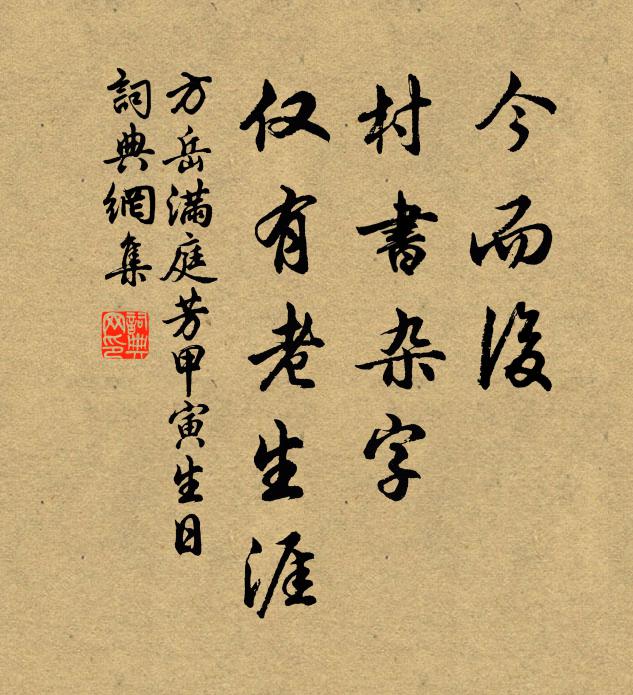 今而後
村書杂字
仅有老生涯
方岳滿庭芳甲寅生日
詞典網集
詞典
网印